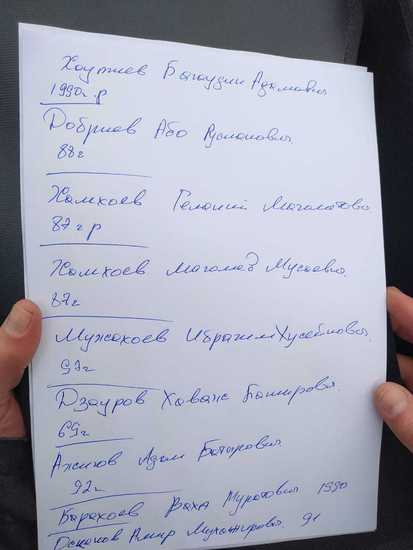 Хаутиев Багаудин Адамович
1990г.р
Добриев Або Русланович
88г
Хамхоев Магометович
87г р
Хамхоев Магомед Мусаевич
87г
Мужахоев Ибрагим Хусейнович.
97г
Дзауров Хаваж Баширович.
69г
Азам Батырович.
92г
Барахоев Ваха Муратович 1990
Амир 91